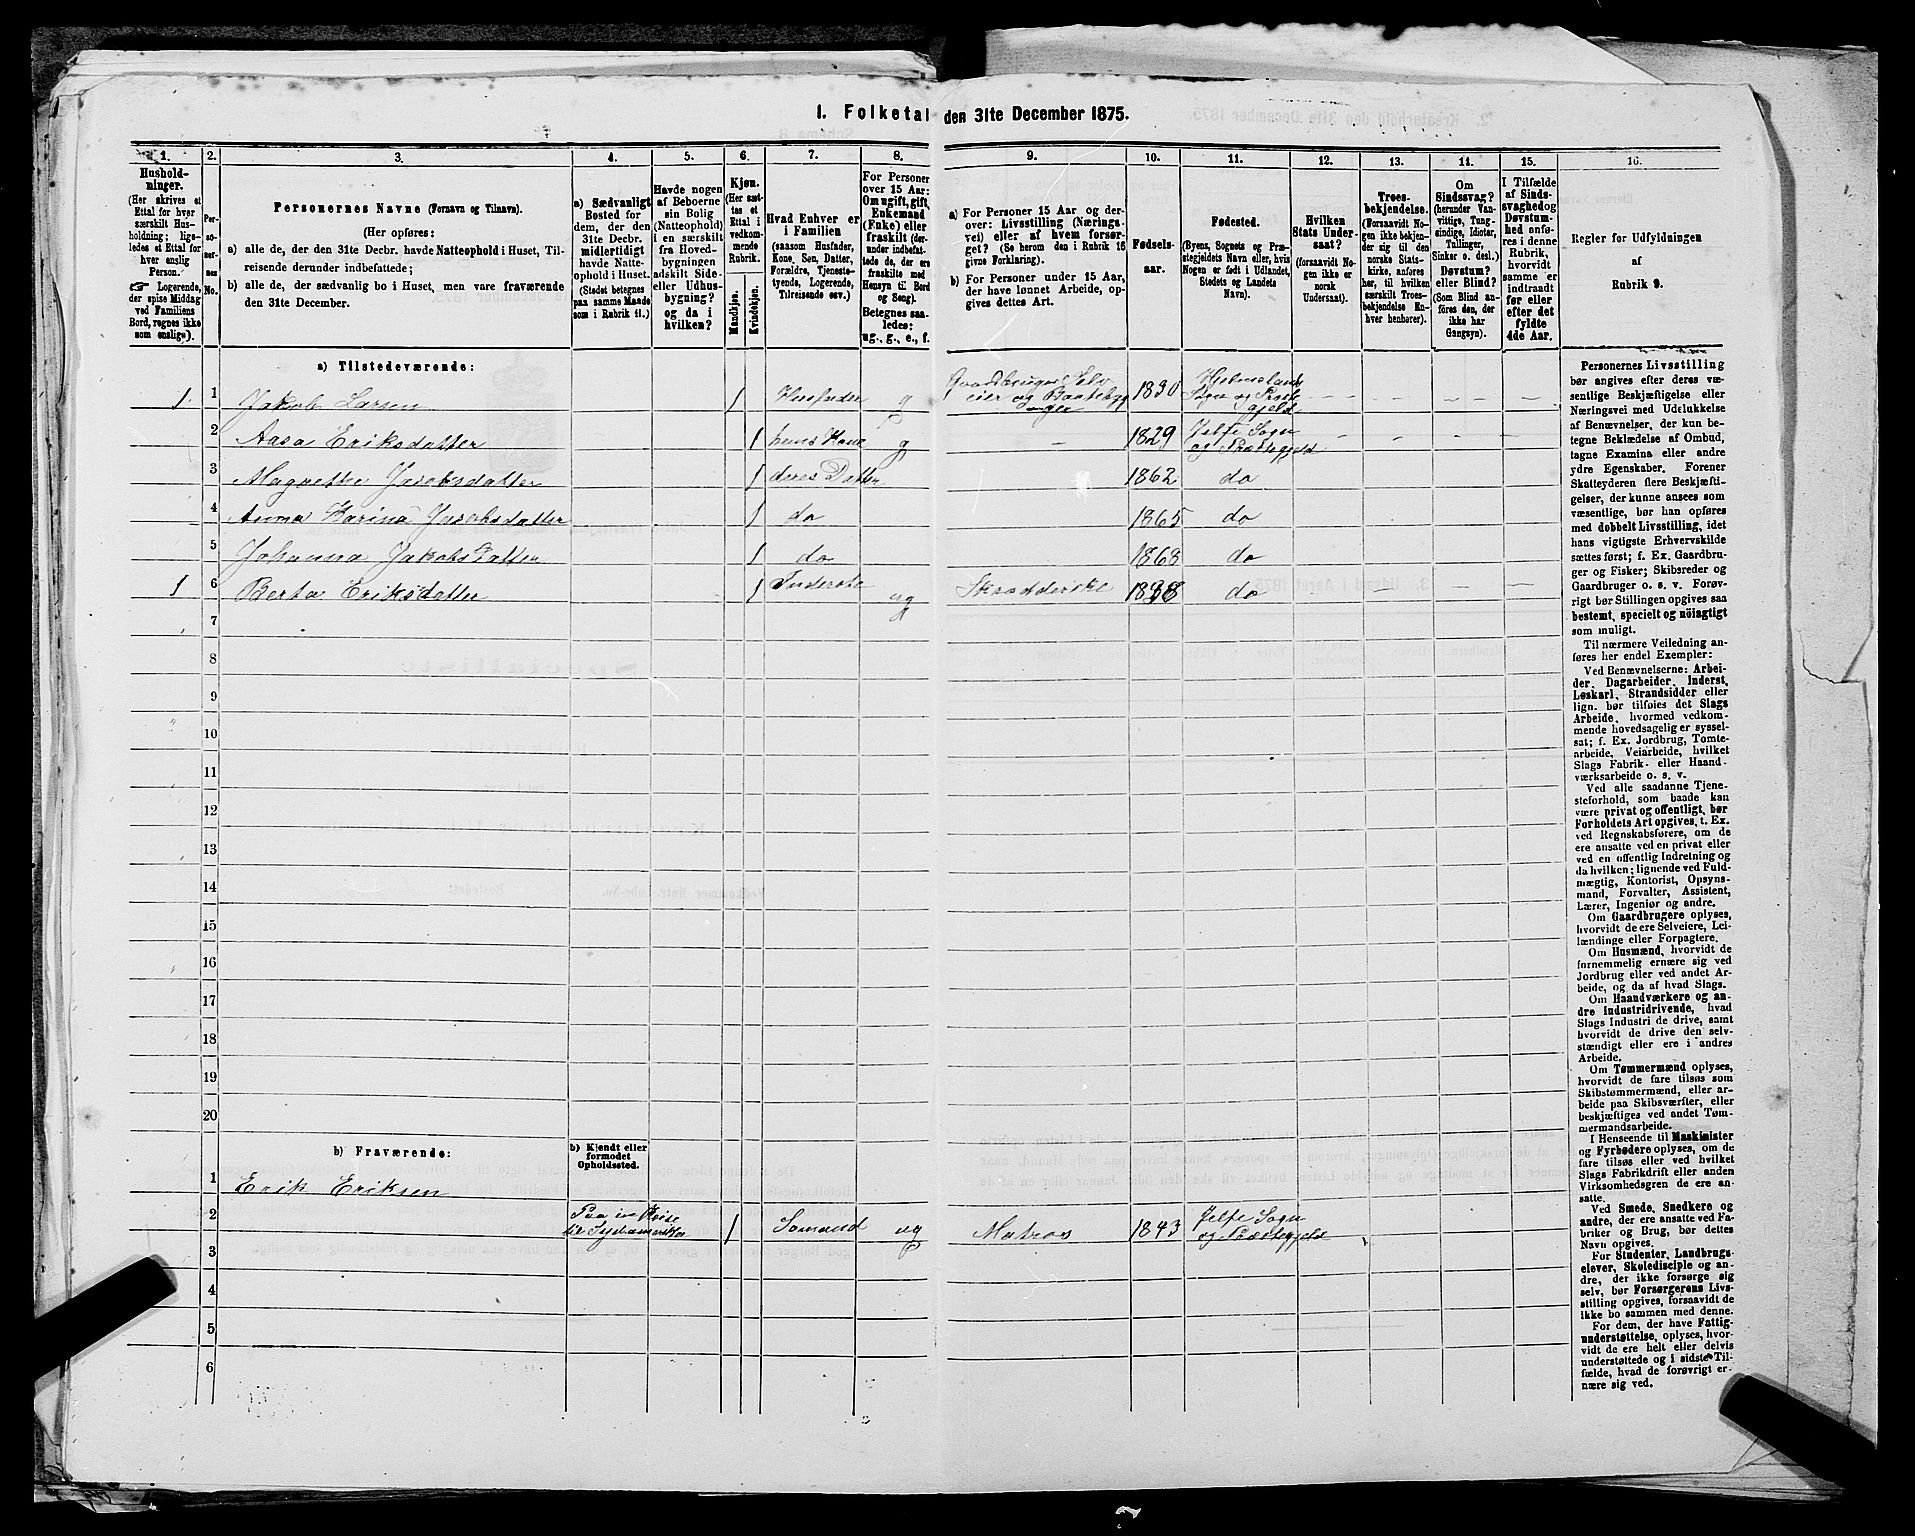 I. Folketal den 31te December 1875.
1. 2. 3. 4. 5. 6. 7. 8. 9. 10. 11. 12. 13. 14. 15. 16.
Hushold-
ninger.
(Her skrives et
Ettal for hver
særskilt Hus-
holdning; lige-
ledes et Ettal for
hver enslig
Person.
☞ Logerende,
der spise Middag
ved Familiens
Bord, regnes ikke
som enslige).
Per-
so-
ner-
nes
No.
Personernes Navne (Fornavn og Tilnavn).
(Her opføres:
a) alle de, der den 31te Decbr. havde Natteophold i Huset, Til-
reisende derunder indbefattede;
b) alle de, der sædvanlig bo i Huset, men vare fraværende
den 31te December.
a) Sædvanligt
Bosted for
dem, der den
31te Decbr.
midlertidigt
havde Natte-
ophold i Huset.
(Stedet betegnes
paa samme Maade
som i Rubrik 11.)
Havde nogen
af Beboerne
sin Bolig
(Natteophold)
i en særskilt
fra Hoved-
bygningen
adskilt Side-
eller Udhus-
bygning?
og da i
hvilken?
Kjøn.
(Her sæt-
tes et
Ettal i
vedkom-
mende
Rubrik.
Mandkjøn.
Kvindekjøn.
Hvad Enhver er
i Familien
(saasom Husfader,
Kone, Søn, Datter,
Forældre, Tjeneste-
tyende, Logerende,
Tilreisende osv.)
For Personer
over 15 Aar:
Om ugift, gift,
Enkemand
(Enke) eller
fraskilt (der-
under indbefat-
tede de, der ere
fraskilte med
Hensyn til Bord
og Seng).
Betegnes saa-
ledes:
ug., g., e., f.
a) For Personer 15 Aar og der-
over: Livsstilling (Nærings-
vei) eller af hvem forsør-
get? (Se herom den i Rubrik 16
givne Forklaring).
b) For Personer under 15 Aar,
der have lønnet Arbeide, op-
gives dettes Art.
Fødsels-
aar.
Fødested.
(Byens, Sognets og Præ-
stegjeldets Navn eller, hvis
Nogen er født i Udlandet,
Stedets og Landets
Navn).
Hvilken
Stats Under-
saat?
(forsaavidt No-
gen ikke er
norsk
Undersaat).
Troes-
bekjendelse.
(Forsaavidt No-
gen ikke bekjen-
der sig til den
norske Stats-
kirke, anføres
her, til hvilken
særskilt Troes-
bekjendelse En-
hver henhører).
Om
Sindssvag?
(herunder Van-
vittige, Tung-
sindige, Idioter,
Tullinger,
Sinker o. desl.)
Døvstum?
eller Blind?
(Som Blind an-
føres den, der
ikke har
Gangsyn).
I Tilfælde
af Sinds-
svaghed og
Døvstum-
hed anfø-
res i denne
Rubrik,
hvorvidt
samme er
indtraadt
før eller
efter det
fyldte
4de Aar.
Regler for Udfyldningen
af
Rubrik 9.
a) Tilstedeværende:
1 1 Jakob Larsen 1 Husfader g Gaardbruger Selv
eier og Baatebygg
er 1830 Sogn og Præste
gjeld – – – –
2 Aasa Eriksdatter 1 hans Kone g – 1829 Sogn
og Præstegjeld – – – –
3 Magrethe Jacobsdatter 1 deres Datter 1862 do
4 Anna Karina Jacobsdatter 1 do 1865 do
5 Johanna Jakobsdatter 1 do 1868 do
1 6 Berta Eriksdatter 1 Inderste ug Skrædderske 1838 do – – –
7
8
9
10
11
12
13
14
15
16
17
18
19
20
b) Fraværende:
b) Kjendt eller
formodet
Opholdssted.
1 Erik Eriksen
2 Paa en Reise
til Sydamerika 1 Sømand ug Matros 1843 Sogn
og Præstegjeld
3
4
5
6
Personernes Livsstilling
bør angives efter deres væ-
sentlige Beskjæftigelse eller
Næringsvei med Udelukkelse
af Benævnelser, der kun be-
tegne Beklædelse af Ombud,
tagne Examina eller andre
ydre Egenskaber. Forener
Skatteyderen flere Beskjæfti-
gelser, der kunne ansees som
væsentlige, bør han opføres
med dobbelt Livsstilling, idet
hans vigtigste Erhvervskilde
sættes først; f. Ex. Gaardbru-
ger og Fisker; Skibsreder og
Gaardbruger o. s. v. Forøv-
rigt bør Stillingen opgives saa
bestemt, specielt og nøiagtigt
som muligt.
Til nærmere Veiledning an-
føres her endel Exempler:
Ved Benævnelserne: Arbei-
der, Dagarbeider, Inderst,
Løskarl, Strandsidder eller
lign. bør tilføies det Slags
Arbeide, hvormed vedkom-
mende hovedsagelig er syssel-
sat; f. Ex. Jordbrug, Tomte-
arbeide, Veiarbeide, hvilket
Slags Fabrik- eller Haand-
værksarbeide o. s. v.
Ved alle saadanne Tjene-
steforhold, som baade kan
være privat og offentligt, bør
Forholdets Art opgives, t. Ex.
ved Regnskabsførere, om de
ere ansatte ved en privat eller
ved en offentlig Indretning og
da hvilken; lignende ved Fuld-
mægtig, Kontorist, Opsyns-
mand, Forvalter, Assistent,
Lærer, Ingeniør og andre.
Om Gaardbrugere oplyses,
hvorvidt de ere Selveiere, Lei-
lændinge eller Forpagtere.
Om Husmænd, hvorvidt de
fornemmelig ernære sig ved
Jordbrug eller ved andet Ar-
beide, og da af hvad Slags.
Om Haandværkere og an-
dre Industridrivende, hvad
Slags Industri de drive, samt
hvorvidt de drive den selv-
stændigt eller ere i andres
Arbeide.
Om Tømmermænd oplyses,
hvorvidt de fare tilsøs som
Skibstømmermænd, eller ar-
beide paa Skibsværfter, eller
beskjæftiges ved andet Tøm-
mermandsarbeide.
I Henseende til Maskinister
og Fyrbødere oplyses, om de
fare tilsøs eller ved hvilket
Slags Fabrikdrift eller anden
Virksomhedsgren de ere an-
satte.
Ved Smede, Snedkere og
andre, der ere ansatte ved Fa-
briker og Brug, bør dettes
Navn opgives.
For Studenter, Landbrugs-
elever, Skoledisciple og an-
dre, der ikke forsørge sig
selv, bør Forsørgerens Livs-
stilling opgives, forsaavidt de
ikke bo sammen med denne.
For dem, der have Fattig-
understøttelse, oplyses, hvor-
vidt de ere helt eller delvis
understøttede og i sidste Til-
fælde, hvad de forøvrigt er-
nære sig ved.